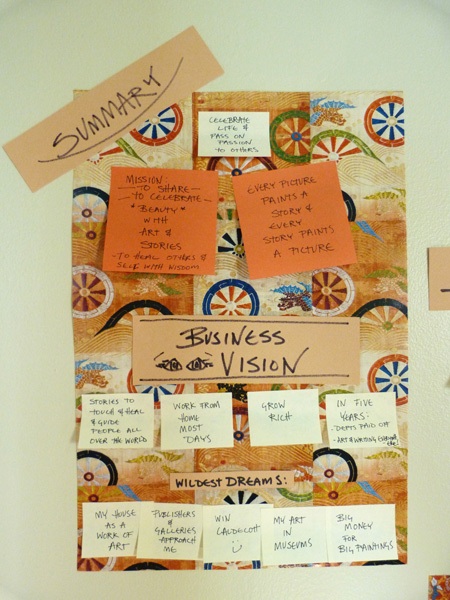 SUMMARY
CELEBRATE
LIFE &
PASS ON
PASSION
TO OTHERS
MISSION:
-TO SHARE-
-TO CELEBRATE-
*BEAUTY*
WITH
ART &
STORIES
-TO HEAL OTHERS &
SELF WITH WISDOM
EVERY PICTURE
PAINTS A
STORY &
EVERY
STORY PAINTS
A PICTURE
BUSINESS
VISION
STORIES TO
TOUCH & HEAL
& GUIDE
PEOPLE ALL
OVER THE WORLD
WORK FROM
HOME
MOST
DAYS
GROW
RICH
IN FIVE
YEARS:
-DEBTS PAID OFF
-ART & WRITING
WILDEST DREAMS:
MY HOUSE
AS A
WORK OF
ART
PUBLISHERS
&
GALLERIES
APPROACH
ME
WIN
CALDECOTT
MY ART
IN
MUSEUMS
BIG
MONEY
FOR
BIG PAINTINGS